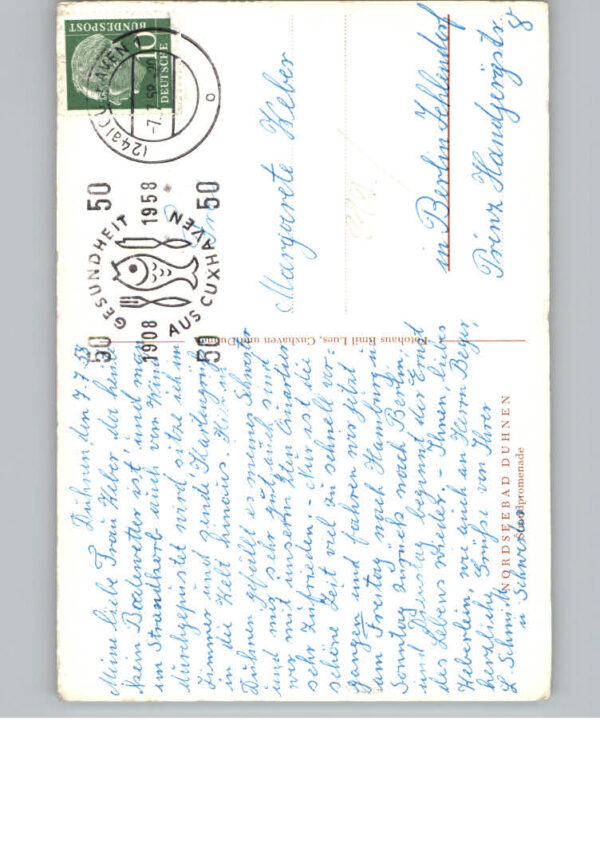 Duhnen, den 7.7.58
Meine liebe Frau Heber da heute
kein Badewetter ist und man
im Strandkorb auch vom Wind
durchgepustet wird sitze ich im
Zimmer und sende Kartengrüße
in die Welt hinaus. Hier in
Duhnen gefällt es meiner Schwester
und mir sehr gut, auch sind
wir mit unserm Quartier
sehr zufrieden. Nur ist die
schöne Zeit viel zu schnell ver-
gangen und fahren wir jetzt
am Freitag nach Hamburg u
Sonntag zurück nach Berlin,
und Dienstag beginnt der Ernst
des Lebens wieder. Ihnen liebes
Heberlein, wie auch an Herrn Beyer,
herzliche Grüße von Ihrer
L. Schmidt
u Schwester
NORDSEEBAD DUHNEN
Strandpromenade
Fotohaus Emil Lues, Cuxhaven und Duhnen
DEUTSCHE
BUNDESPOST
10
(24a) CUXHAVEN
-7.7.58
50 1908 50
GESUNDHEIT
AUS CUXHAVEN
50 1958 50
Frau
Margarete Heber
in Berlin Zehlendorf
Prinz Handjerystr.